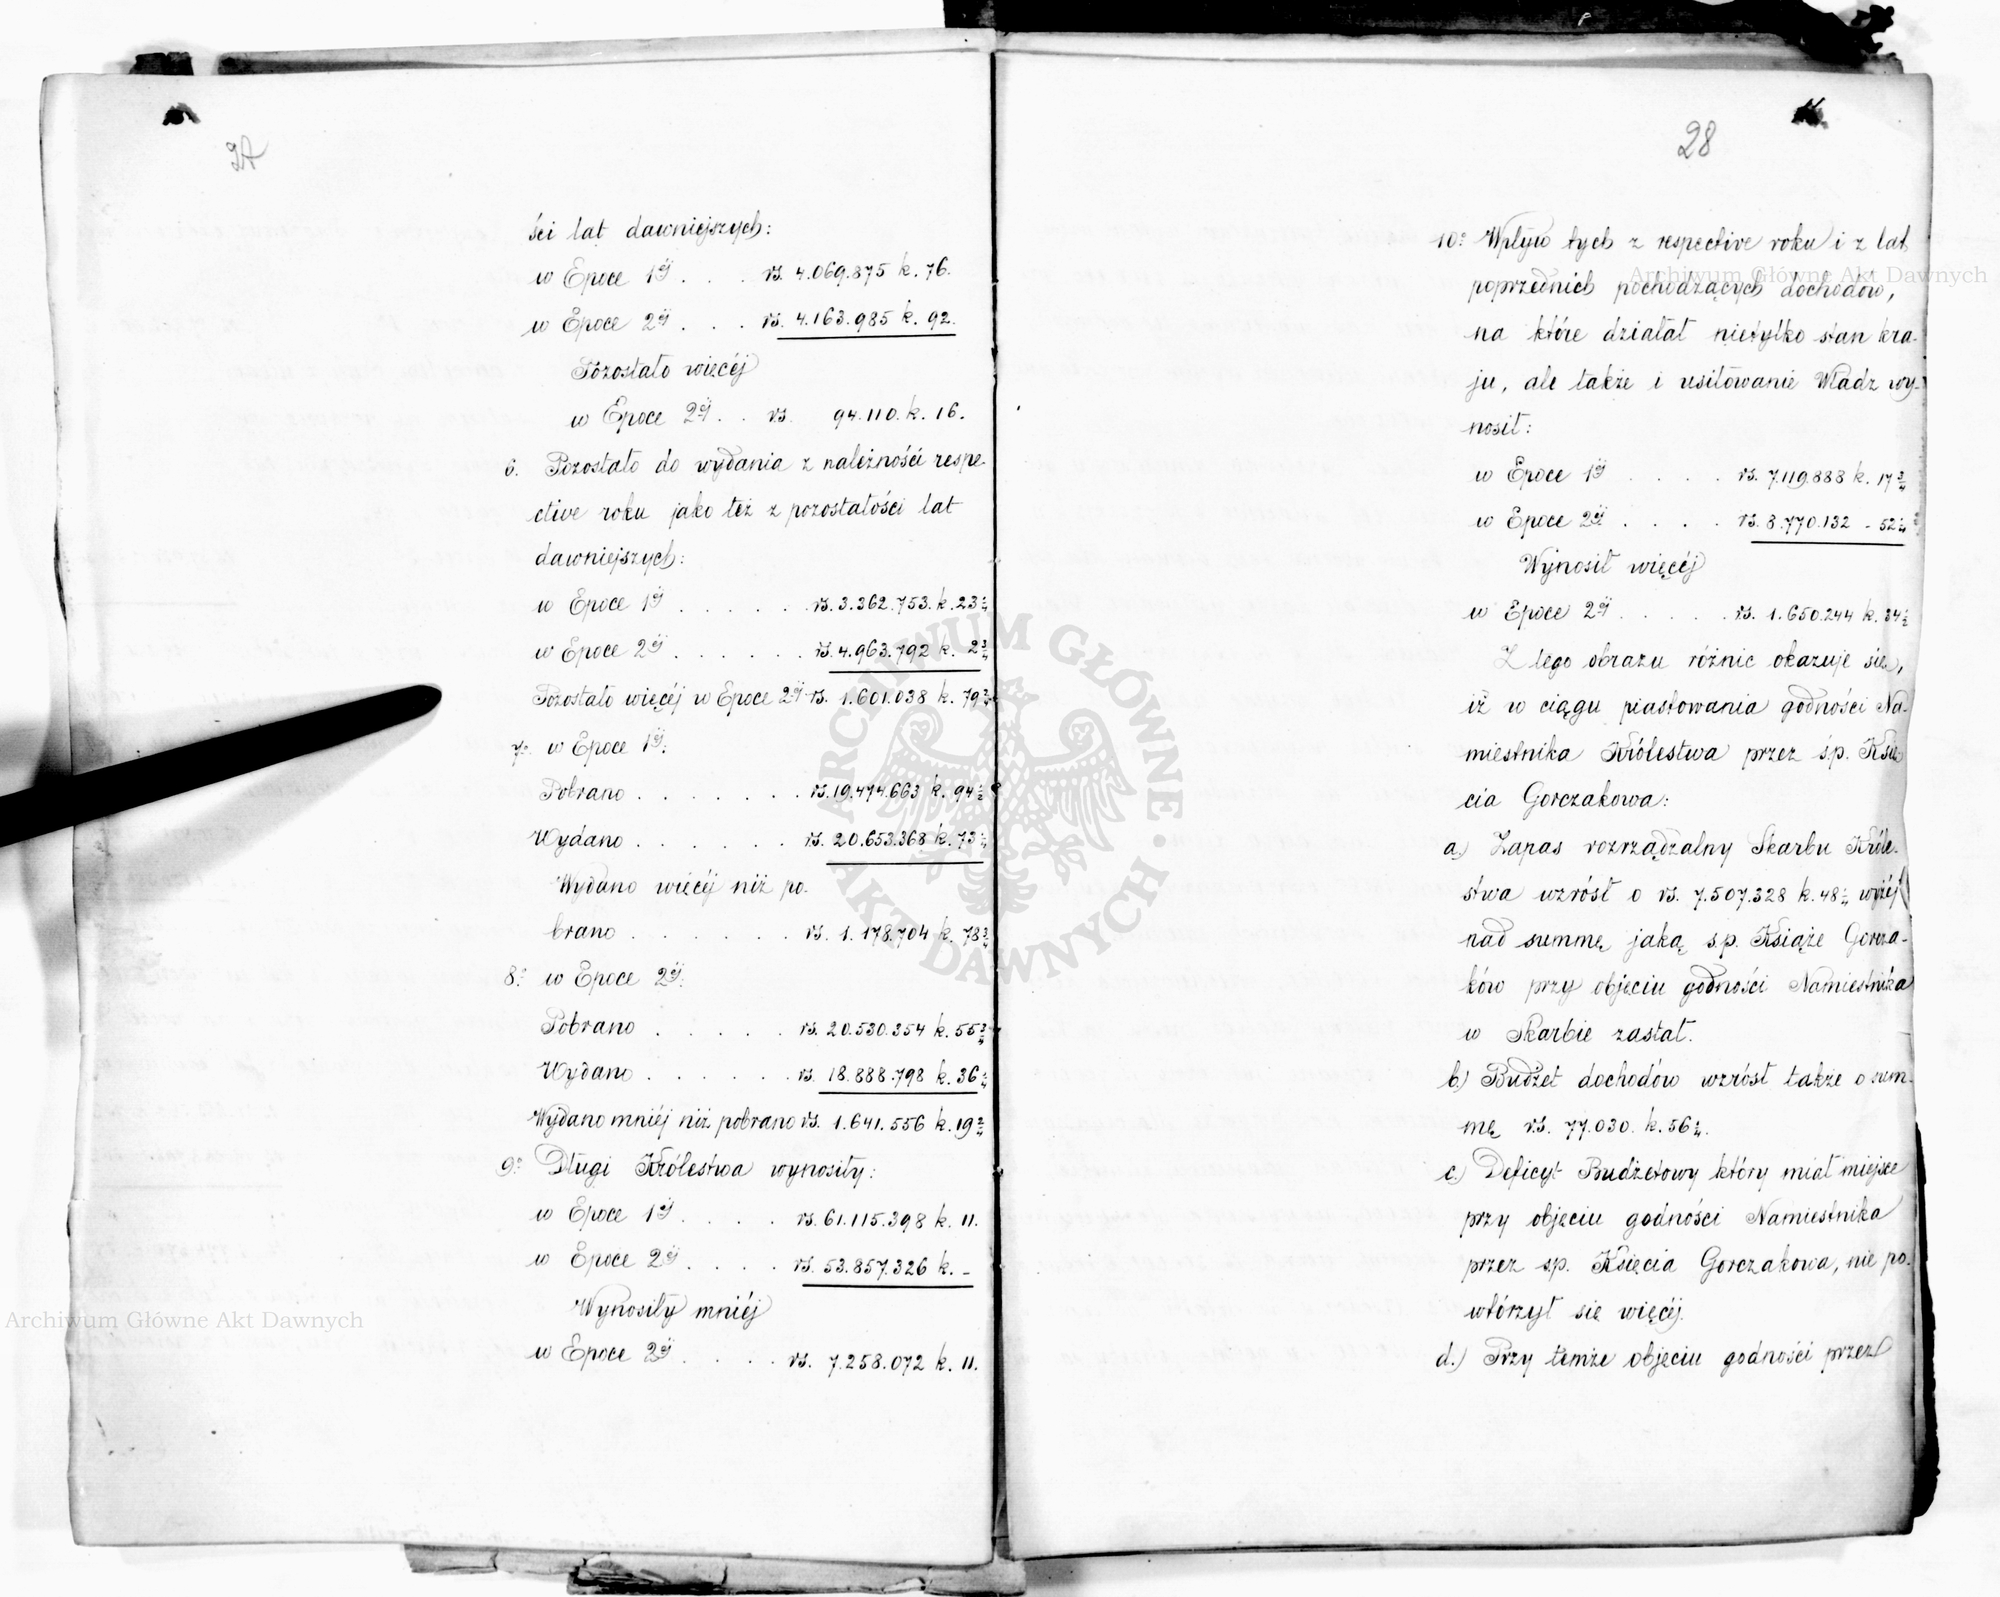 28
ści lat dawniejszych:
w Epoce 1éj . . . rs. 4.069.875 k. 76.
w Epoce 2éj . . . rs. 4.163.985 k. 92.
Pozostało więcéj
w Epoce 2éj . . rs. 94.110. k. 16.
6. Pozostało do wydania z należności respe-
ctive roku jako też z pozostałości lat
dawniejszych:
w Epoce 1éj . . . . . . rs. 3.362.753. k. 23¼
w Epoce 2éj . . . . . . rs. 4.963.792 k. 2¾
Pozostało więcéj w Epoce 2éj rs. 1.601.038 k. 79
7. w Epoce 1éj:
Pobrano . . . . . . . rs. 19.474.663 k. 94½
Wydano . . . . . . rs. 20.653.368 k. 73¼
Wydano więcéj niż po-
brano . . . . . . rs. 1.178.704 k. 78¾
8. w Epoce 2éj:
Pobrano . . . . . rs. 20.530.354 k. 55¾
Wydano . . . . . . rs. 18.888.798 k. 36
Wydano mniéj niż pobrano rs. 1.641.556 k. 19¾
9. Długi Królestwa wynosiły:
w Epoce 1éj . . . . rs. 61.115.398 k. 11.
w Epoce 2éj . . . . rs. 53.857.326 k. –
Wynosiły mniéj
w Epoce 2éj . . . . rs. 7.258.072 k. 11.
10. Wpływ tych z respective roku i z lat
poprzednich pochodzących dochodów,
na które działał nietylko stan kra-
ju, ale także i usiłowanie Władz wy-
nosił:
w Epoce 1éj . . . . rs. 7.119.888 k. 17¾
w Epoce 2éj . . . . rs. 8.770.132 – 52¼
Wynosił więcéj
w Epoce 2éj . . . . . rs. 1.650.244 k. 34½
Z tego obrazu różnic okazuje się,
iż w ciągu piastowania godności Na-
miestnika Królestwa przez ś.p. Księ-
cia Gorczakowa:
a) Zapas rozrządzalny Skarbu Króle-
stwa wzrósł o rs. 7.507.328 k. 48¼ wyżéj
nad summę jaką ś.p. Książe Gorcza-
ków przy objęciu godności Namiestnika
w Skarbie zastał.
b.) Budżet dochodów wzrósł także o sum-
mę rs. 77.030. k. 56¼.
c.) Deficyt Budżetowy który miał miejsce
przy objęciu godności Namiestnika
przez ś.p. Księcia Gorczakowa, nie po-
wtórzył się więcéj.
d.) Przy témże objęciu godności przez
Archiwum Główne Akt Dawnych
ARCHIWUM GŁÓWNE AKT DAWNYCH
Archiwum Główne Akt Dawnych